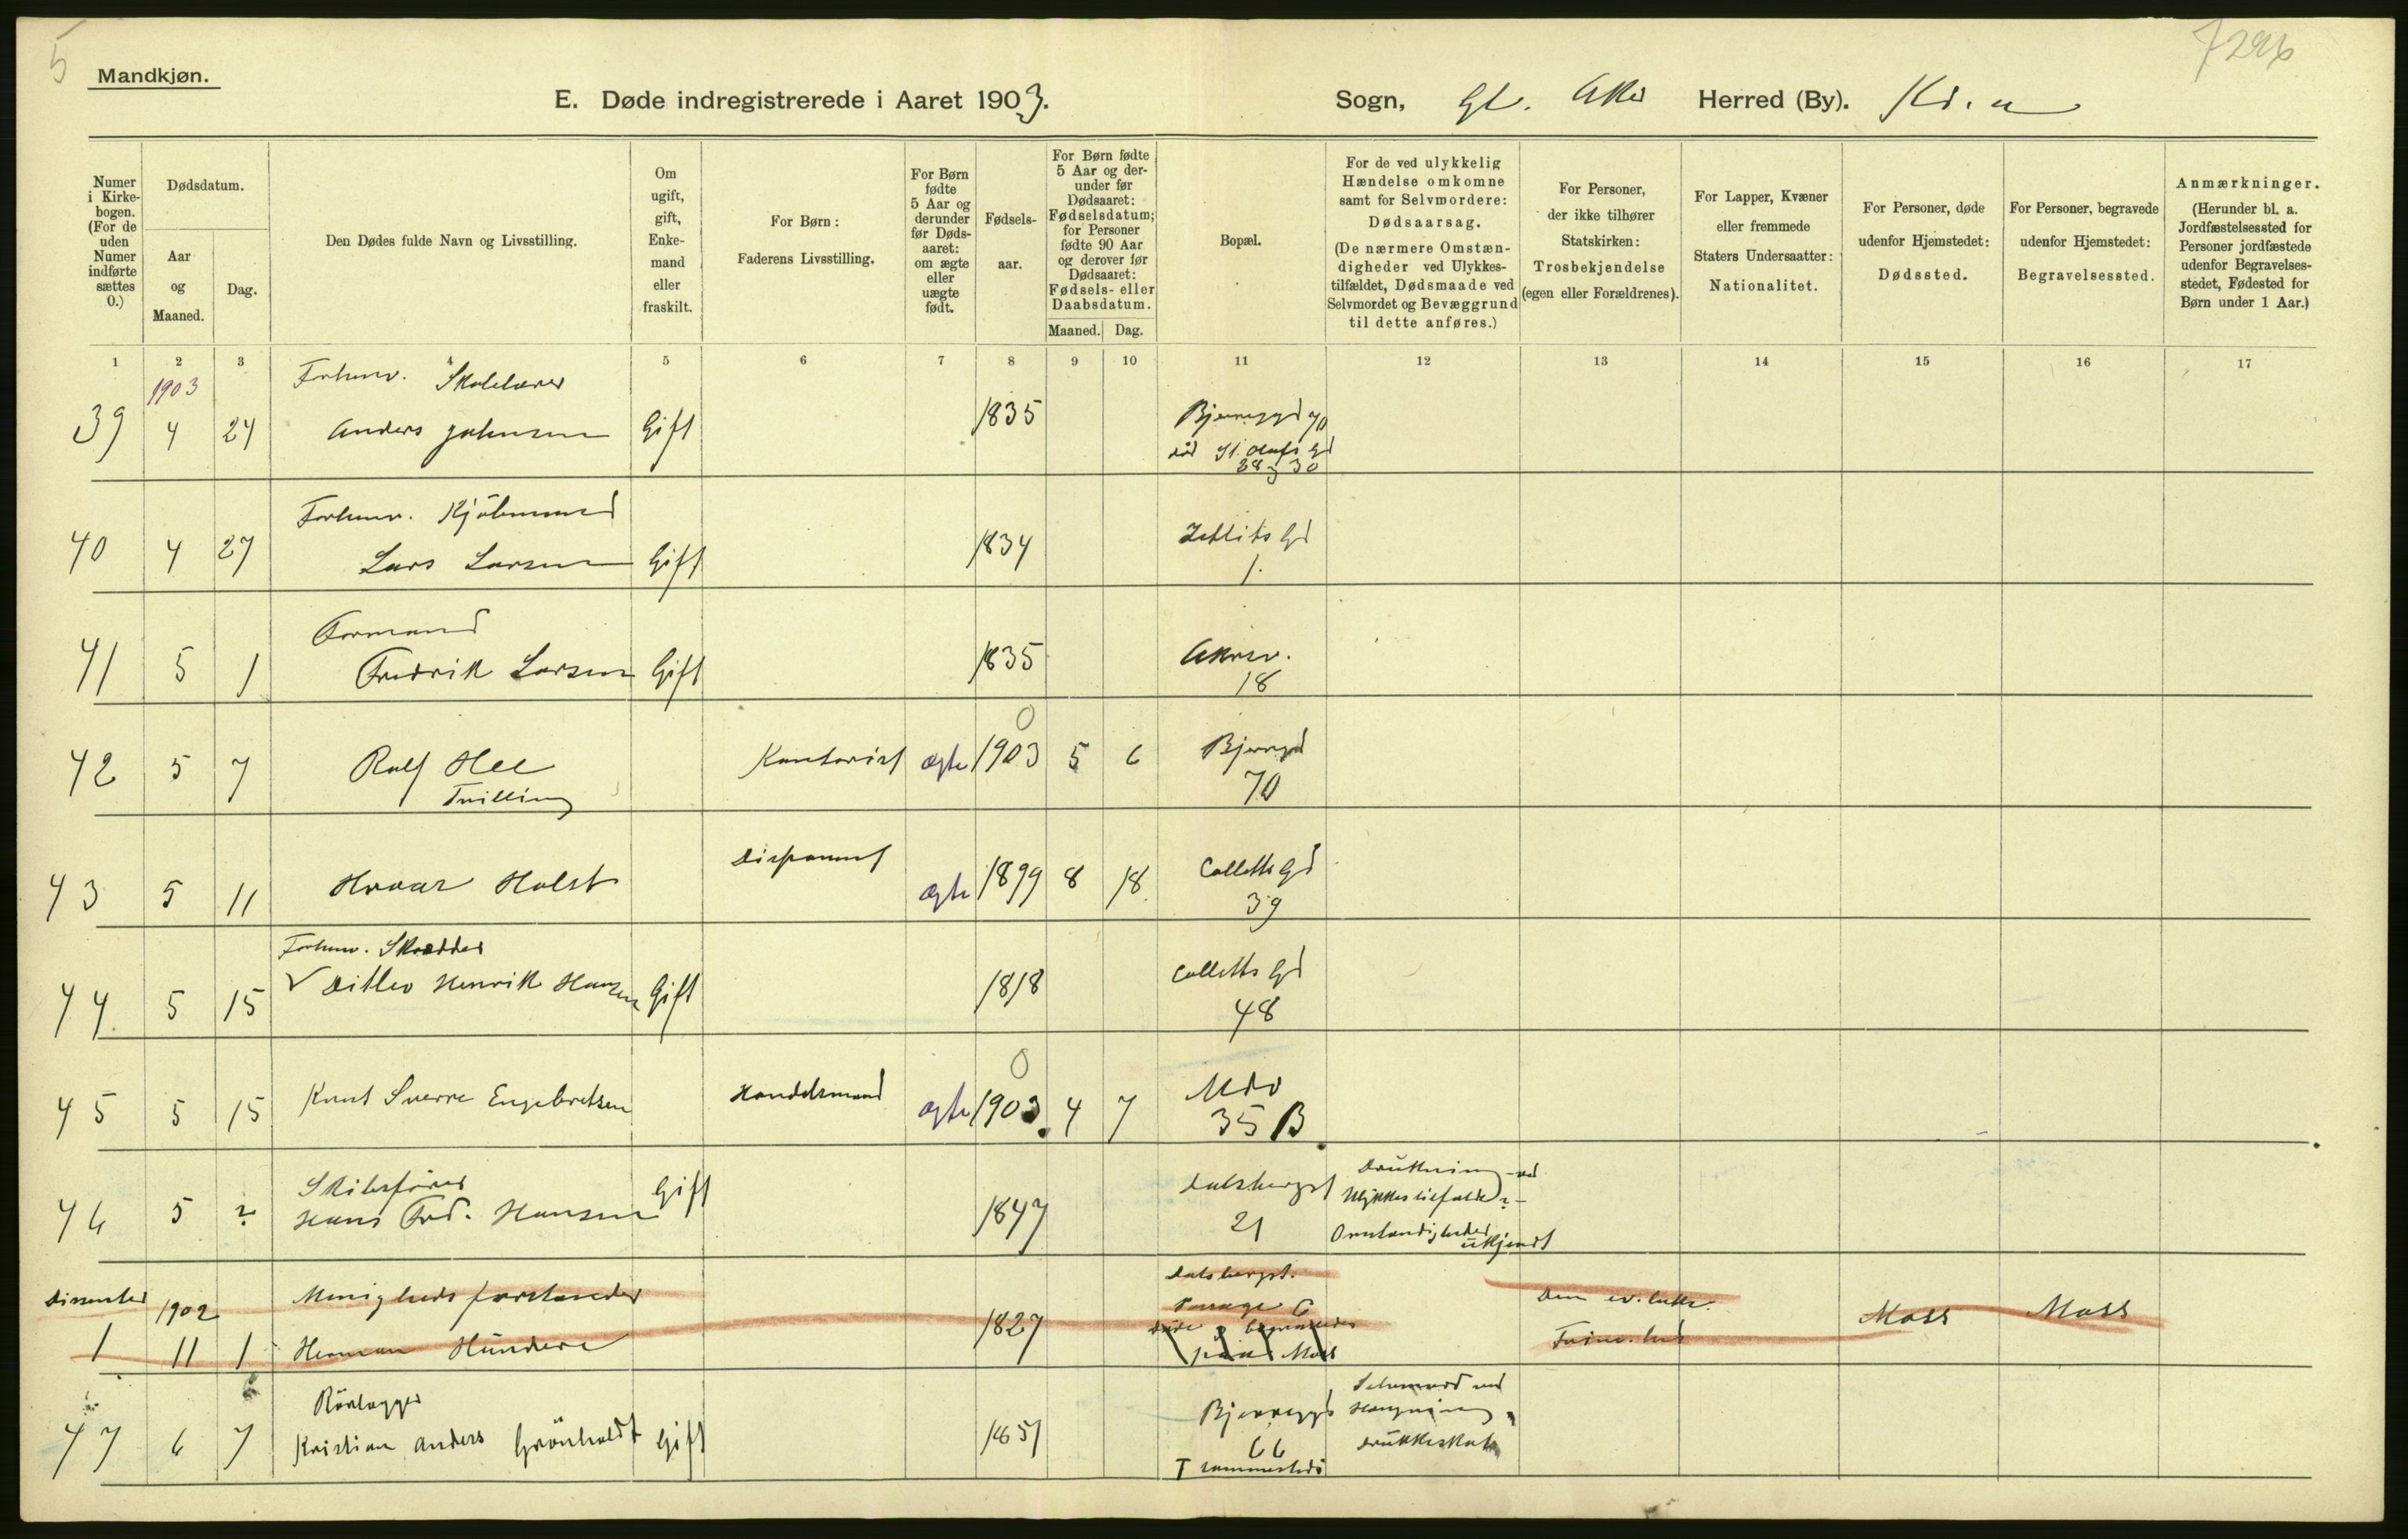 5
7296
Mandkjøn.
E. Døde indregistrerede i Aaret 1903.
Sogn, Gl. Aker Herred (By). Kr.a
Numer i Kirkebogen. (For de uden Numer indførte sættes 0.)
Dødsdatum.
Aar og Maaned.
Dag.
Den Dødes fulde Navn og Livsstilling.
Om ugift, gift, Enkemand eller fraskilt.
For Børn: Faderens Livsstilling.
For Børn fødte 5 Aar og derunder før Dødsaaret: om ægte eller uægte født.
Fødselsaar.
For Børn fødte 5 Aar og derunder før Dødsaaret: Fødselsdatum; for Personer fødte 90 Aar og derover før Dødsaaret: Fødsels- eller Daabsdatum.
Maaned. Dag.
Bopæl.
For de ved ulykkelig Hændelse omkomne samt for Selvmordere: Dødsaarsag. (De nærmere Omstændigheder ved Ulykkestilfældet, Dødsmaade ved Selvmordet og Bevæggrund til dette anføres.)
For Personer, der ikke tilhører Statskirken: Trosbekjendelse (egen eller Forældrenes).
For Lapper, Kvæner eller fremmede Staters Undersaatter: Nationalitet.
For Personer, døde udenfor Hjemstedet: Dødssted.
For Personer, begravede udenfor Hjemstedet: Begravelsessted.
Anmærkninger. (Herunder bl. a. Jordfæstelsessted for Personer jordfæstede udenfor Begravelsesstedet, Fødested for Børn under 1 Aar.)
1 2 3 4 5 6 7 8 9 10 11 12 13 14 15 16 17
1903
Forhenv. Skolelærer
39 4 24 Anders Johnsen Gift 1835 Bjerregd 70
død St. Olafs Gd
28 & 30
Forhenv. Kjöbmand
40 4 27 Lars Larsen Gift 1834 Zetlits Gd
1.
Formand
41 5 1 Fredrik Larsen Gift 1835 Akersv.
18
0
42 5 7 Rolf Hee Kontorist ægte 1903 5 6 Bjerregd
Tvilling 70
Disponent
43 5 11 Hroar Holst ægte 1899 8 18. Colletts Gd
39
Forhenv. Skrædder
44. 5 15 ✓ Ditlev Henrik Hansen Gift 1818 Colletts Gd
48
0
45 5 15 Knut Sverre Engebretsen Handelsmand ægte 1903. 4 7 Uldv
35 B
Skibsfører
46 5 ? Hans Fred. Hansen Gift 1847 Dalsbergst
21
Drukning ved
Ulykkestilfælde?
Omstændigheder
ukjendt
Dissenter 1902 Menighedsforstander Dalsbergst.
1 11 1 Herman Hundere 1827
Passage 6
døde & begravedes
paa Moss
Den ev. luth.
Moss Moss
Rörlægger
47 6 7 Kristian Anders Grönholdt Gift 1851 Bjerregd
66
T sammesteds
Selvmord ved
Hængning,
drukkeskab